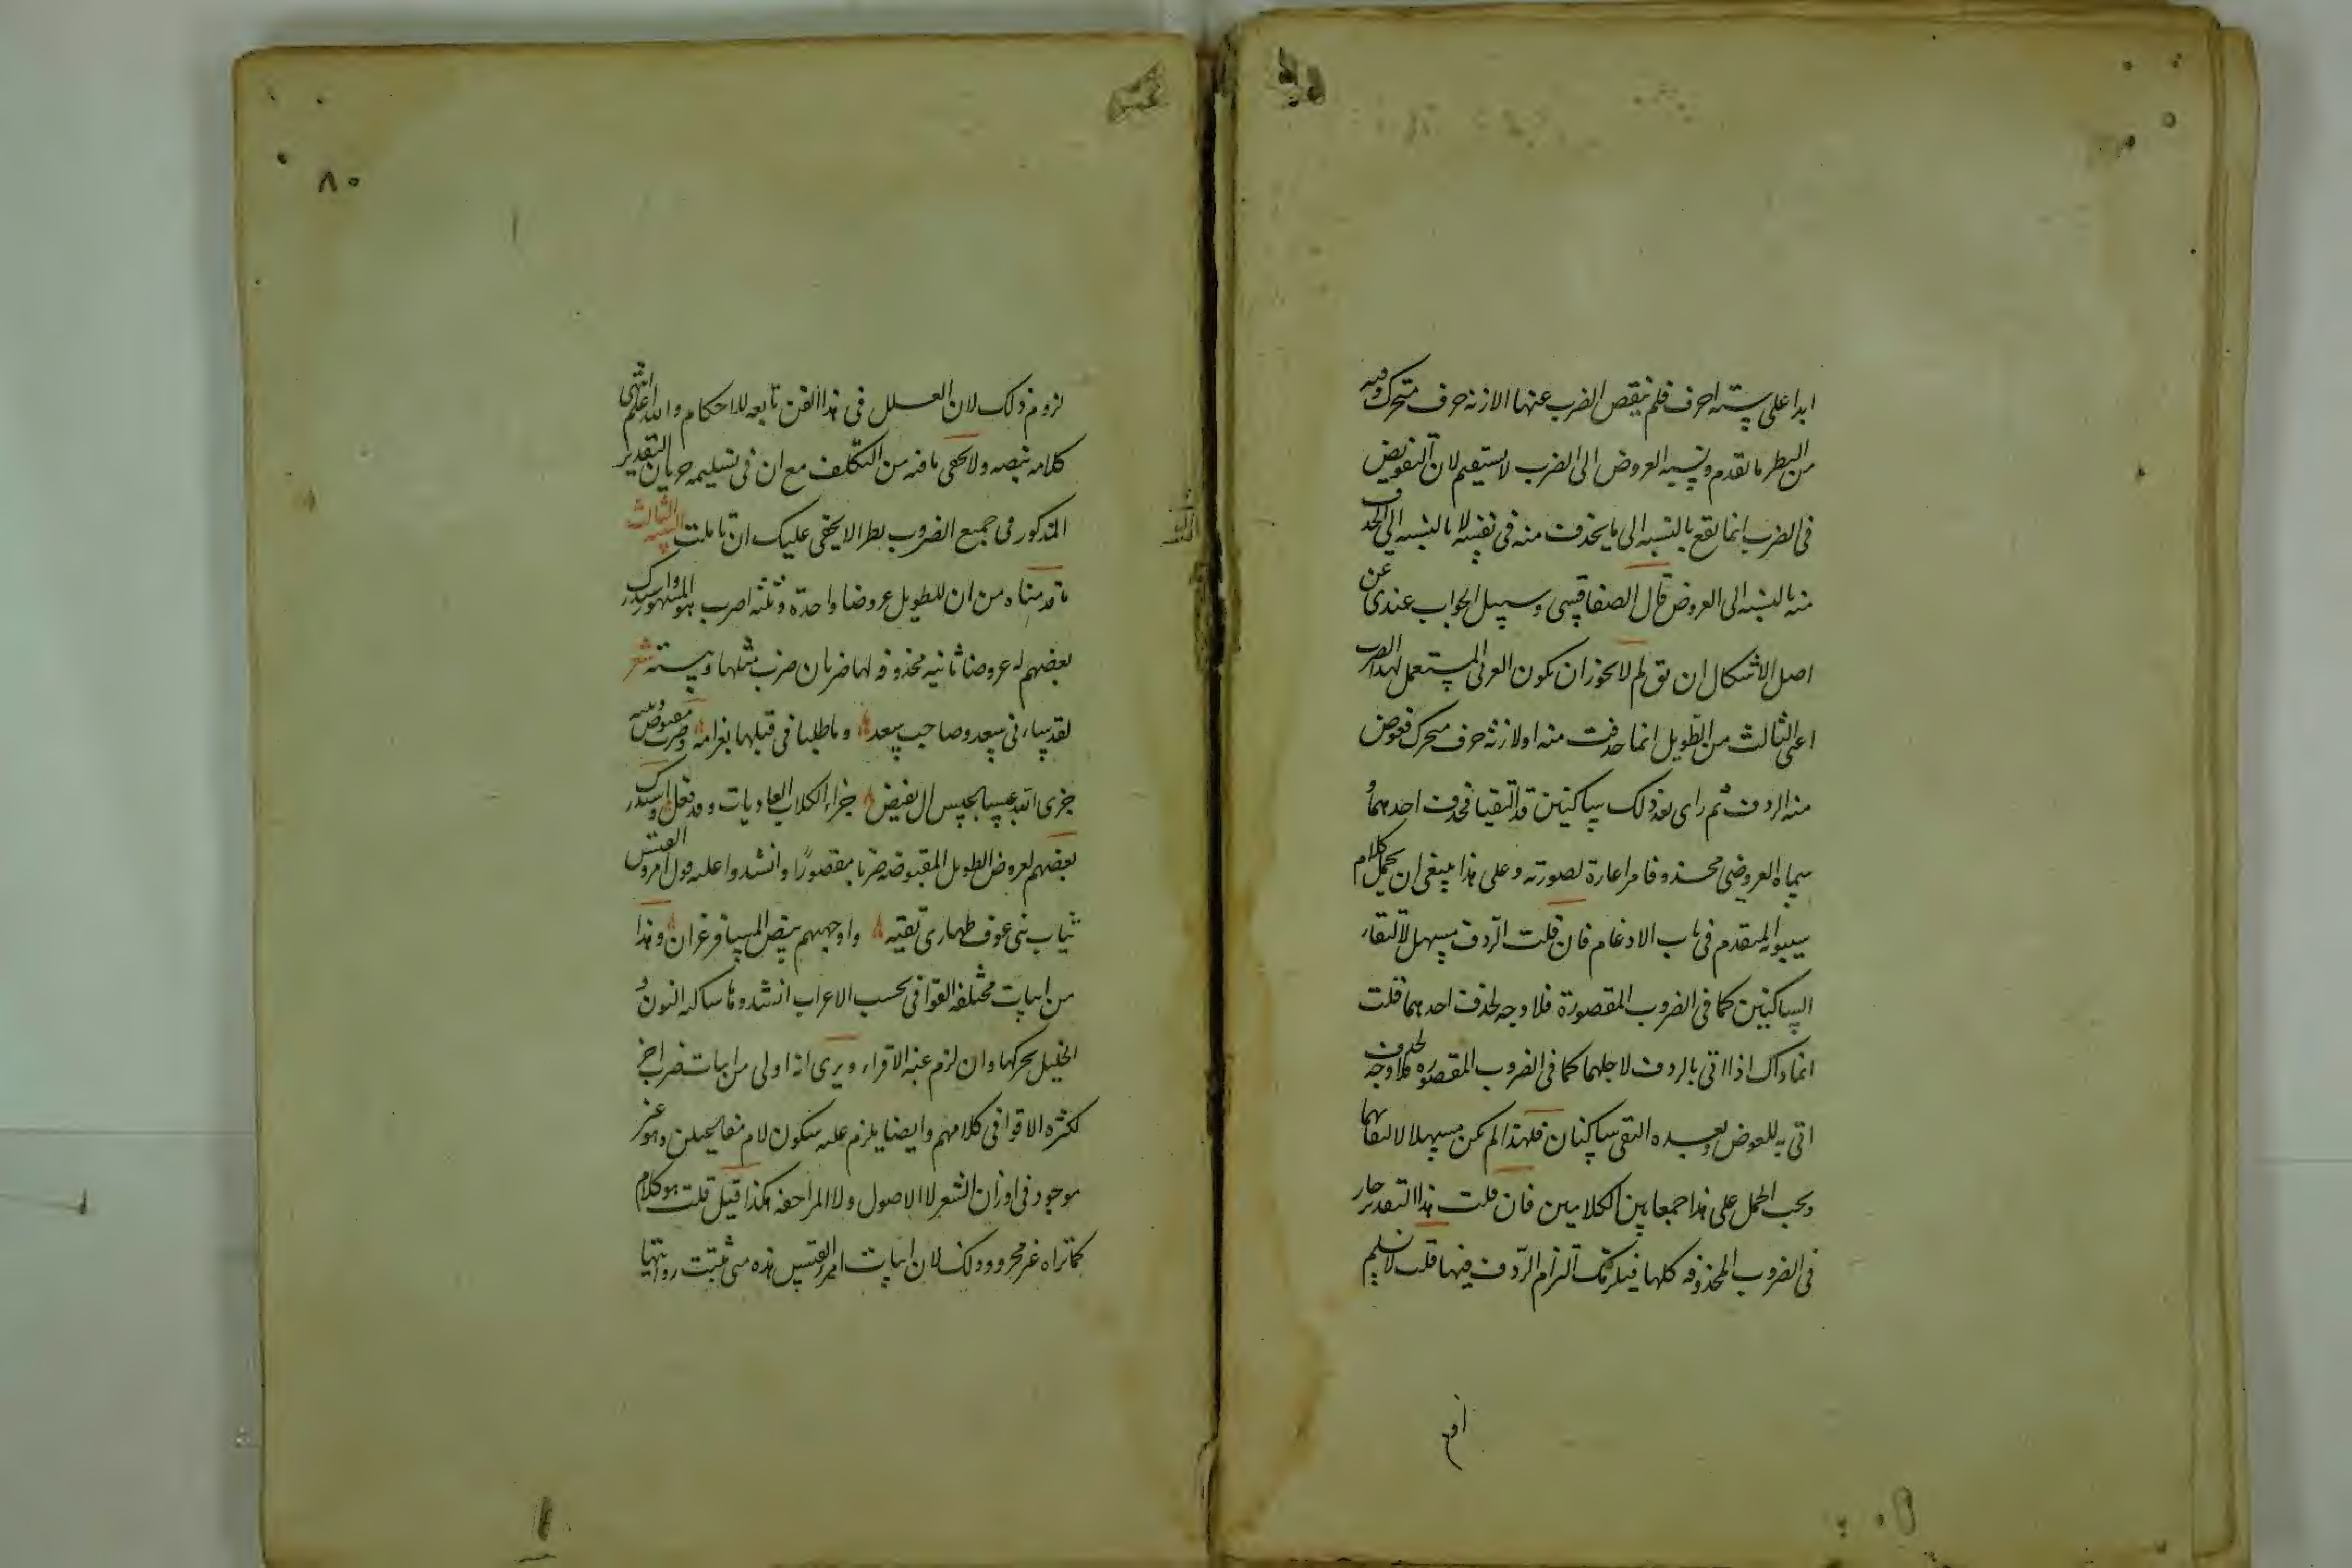 ابدا على ستة احرف فلم ينقص الضرب عنها الازنة حرف متحرك وفيه
من النظر ما تقدم ونسبة العروض الى الضرب لا يستقيم لان التعويض
فى الضرب انما يقع بالنسبة الى ما يحذف منه فى نفسه لا بالنسبة الى الحذف
منه بالنسبة الى العروض قال الصفاقسى وسبيل الجواب عندى عن
اصل الاشكال ان يق لم لا يجوز ان يكون العربى المستعمل لهذا الضرب
اعنى الثالث من الطويل انما حذفت منه اولا زنة حرف متحرك فعوض
منه الردف ثم راى بعد ذلك ساكنين قد التقيا فحذف احدهما و
سماه العروضى محذوفا مراعاة لصورته وعلى هذا ينبغى ان يحمل كلام
سيبويه المتقدم فى باب الادغام فان قلت الردف مسهل لالتقاء
الساكنين كما فى الضروب المقصورة فلا وجه لحذف احدهما قلت
انما ذاك اذا اتى بالردف لاجلهما كما فى الضروب المقصورة فلا وجه لحذف
اتى به للعوض وبعده التقى ساكنان فلهذا لم يكن مسهلا لالتقائهما
ويجب الحمل على هذا جمعا بين الكلامين فان قلت هذا التقدير جار
فى الضروب المحذوفة كلها فيلزمك التزام الردف فيها قلت لا نسلم
لزوم ذلك لان العلل فى هذا الفن تابعة للاحكام والله اعلم انتهى
كلامه بنصه ولا يخفى ما فيه من التكلف مع ان فى تسليمه جريان التقدير
المذكور فى جميع الضروب نظر الا يخفى عليك ان تاملت التنبيه الثالث
ما قدمناه من ان للطويل عروضا واحدة وثلثة اضرب هو المشهور واستدرك
بعضهم له عروضا ثانية محذوفة لها ضربان ضرب مثلها وبيته شعر
لقد ساءنى سعد وصاحب سعد وما طلبا فى قتلها بغرامة وضرب مقبوض وبيته
جزى الله عبسا عبس ال بغيض جزاء الكلاب العاويات وقد فعل واستدرك
بعضهم لعروض الطويل المقبوضة ضربا مقصورًا وانشدوا عليه قول امرؤ القيس
ثياب بنى عوف طهارى نقية واوجههم بيض المسافر غران وهذا
من ابيات مختلفة القوافى بحسب الاعراب انشدوها ساكنة النون و
الخليل يحركها وان لزم عنه الاقواء ويرى انه اولى من اثبات ضرب اخر
لكثرة الاقوا فى كلامهم وايضا يلزم عليه سكون لام مفاعيلن وهو غير
موجود فى اوزان الشعر لا الاصول ولا المزاحفة هكذا قيل قلت هو كلام
كما تراه غير محرر وذلك لان ابيات امرء القيس هذه متى ثبتت روايتها
٨٠